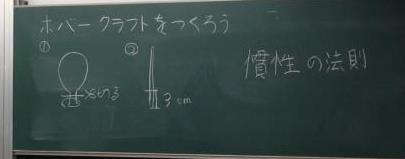 ホバークラフトをつくろう
①
②
3cm
慣性の法則